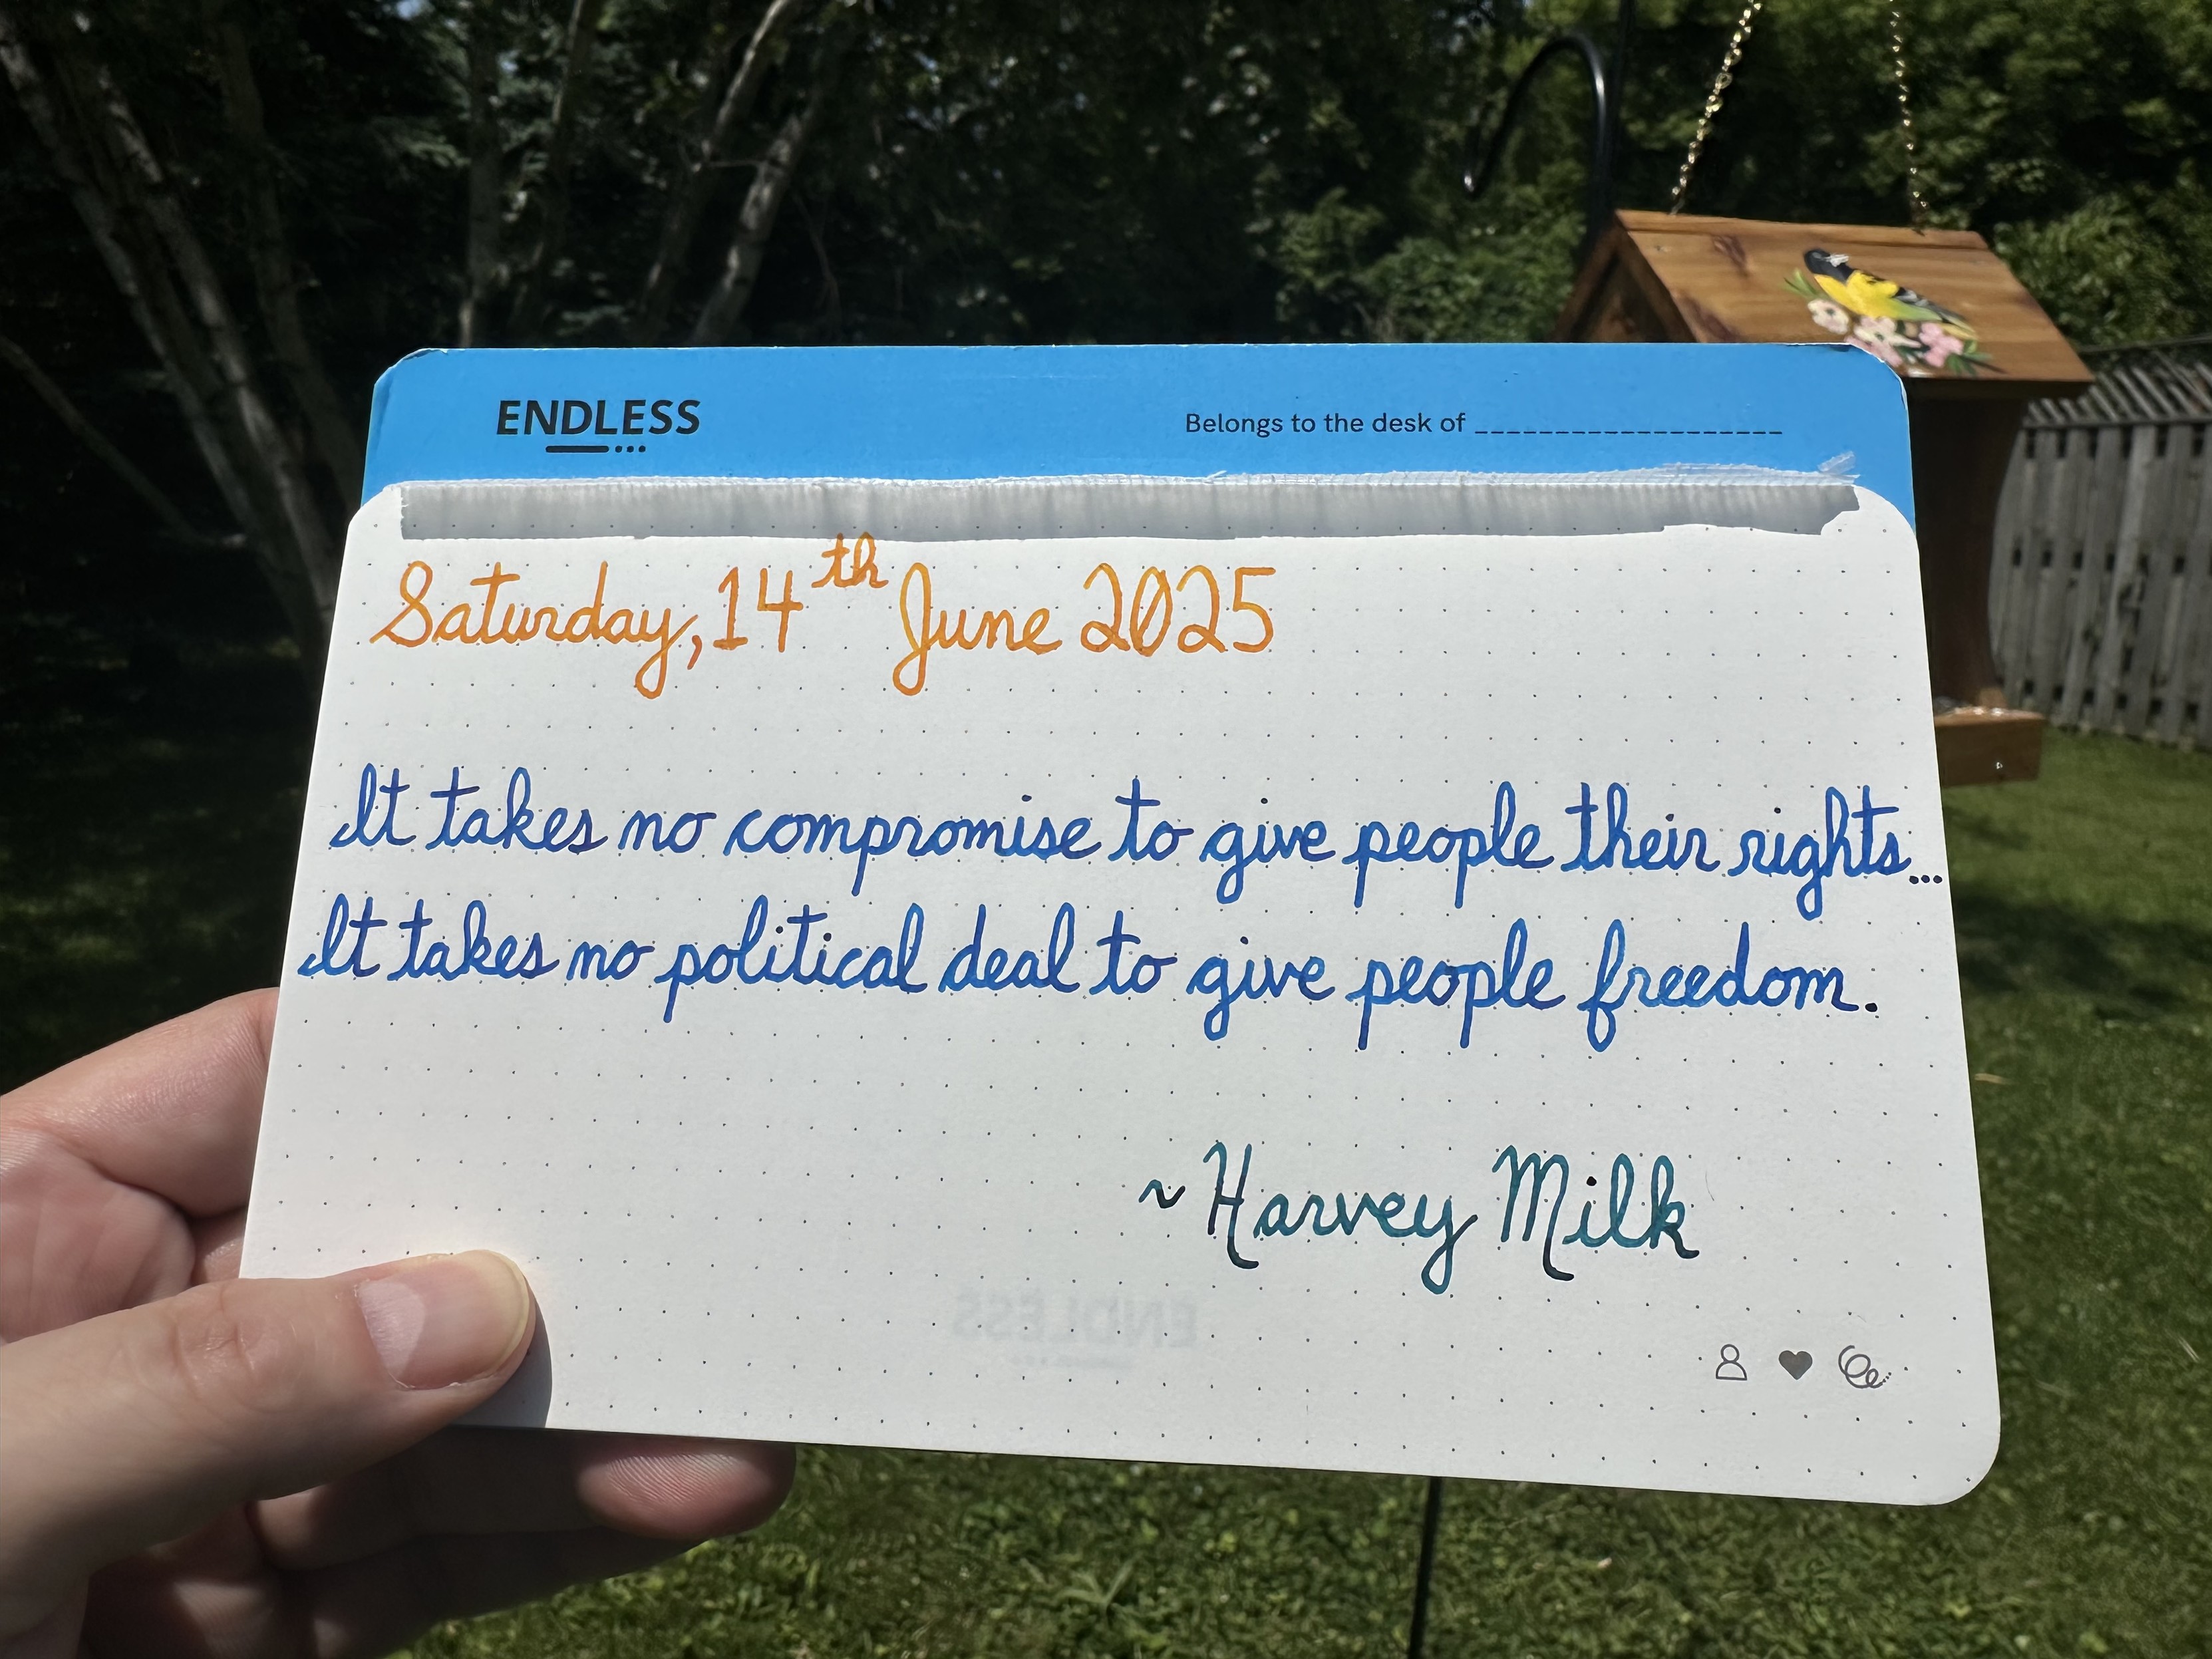 ENDLESS
Belongs to the desk of ____________________
Saturday, 14th June 2025
It takes no compromise to give people their rights...
It takes no political deal to give people freedom.
~Harvey Milk
ENDLESS